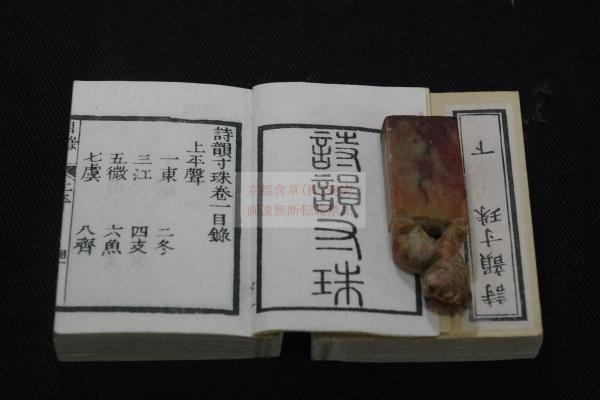 詩韻寸珠
下
詩韻寸珠
詩韻寸珠卷一目錄
上平聲
一東 二冬
三江 四支
五微 六魚
七虞 八齊
目錄
京都含章(株)
画像無断転載禁止